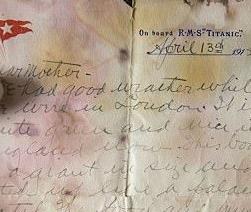 On board R·M·S "TITANIC."
April 13th 191
ar Mother -
e had good weather while
were in London. It
ute green and nice
gland now. This boa
a giant in size and
ted up like a palac